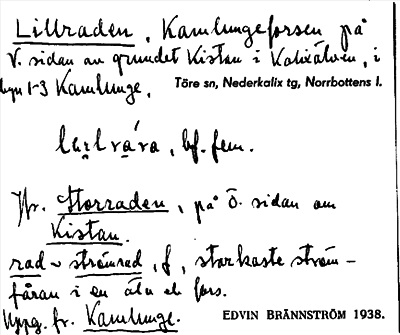 Lillraden, Kamlungeforsen på
V. sidan av grundet Kistan i Kalixälven, i
byn 1-3 Kamlunge. Töre sn, Nederkalix tg, Norrbottens l.
bf. fem.
Jfr. Storraden, på Ö. sidan om
Kistan.
rad ~ strömrad, f, starkaste ström-
fåran i en älv el. fors.
Uppg. fr. Kamlunge. EDVIN BRÄNNSTRÖM 1938.